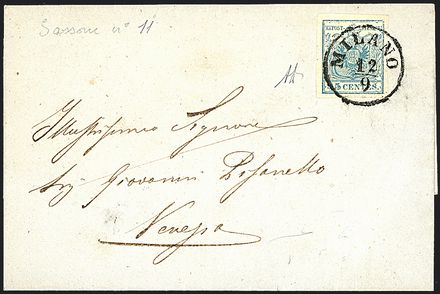 Sassone n° 11
KAIS. KÖN. POST-STEMPEL
45 CENTES.
MILANO
12
9
Illustrissimo Signore
Sig Giovanni Pisanello
Venezia